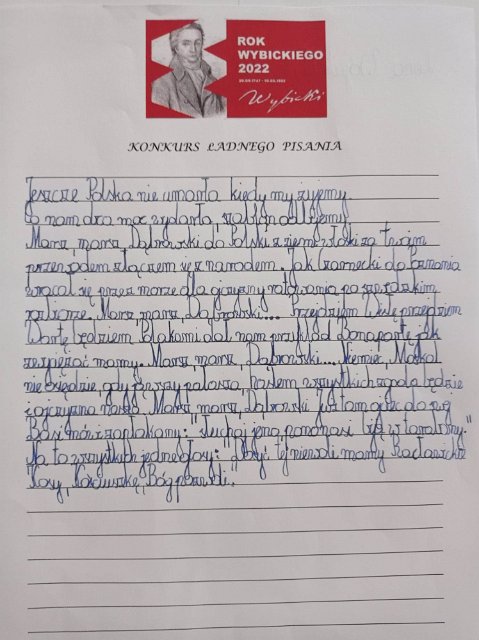 ROK
WYBICKIEGO
2022
Wybicki
KONKURS ŁADNEGO PISANIA
Jeszcze Polska nie umarła kiedy my żyjemy.
Co nam obca moc wydarła, szablą odbijemy.
Marsz, marsz, Dąbrowski do Polski z ziemi włoski za Twoim
przewodem złączem się z narodem. Jak Czarnecki do Poznania
wracał się przez morze dla ojczyzny ratowania po szwedzkim
rozbiorze. Marsz, marsz, Dąbrowski... Przejdziem Wisłę przejdziem
Wartę będziem Polakami dał nam przykład Bonaparte jak
zwyciężać mamy. Marsz, marsz, Dąbrowski... Niemiec, Moskal
nie osiędzie, gdy jąwszy pałasza, hasłem wszystkich zgoda będzie
i ojczyzna nasza. Marsz, marsz, Dąbrowski Już tam ojciec do swej
Basi mówi zapłakany: "słuchaj jeno pono nasi biją w tarabany."
Na to wszystkich jedne głosy: "Dosyć tej niewoli mamy Racławickie
Kosy, Kościuszkę, Bóg pozwoli."